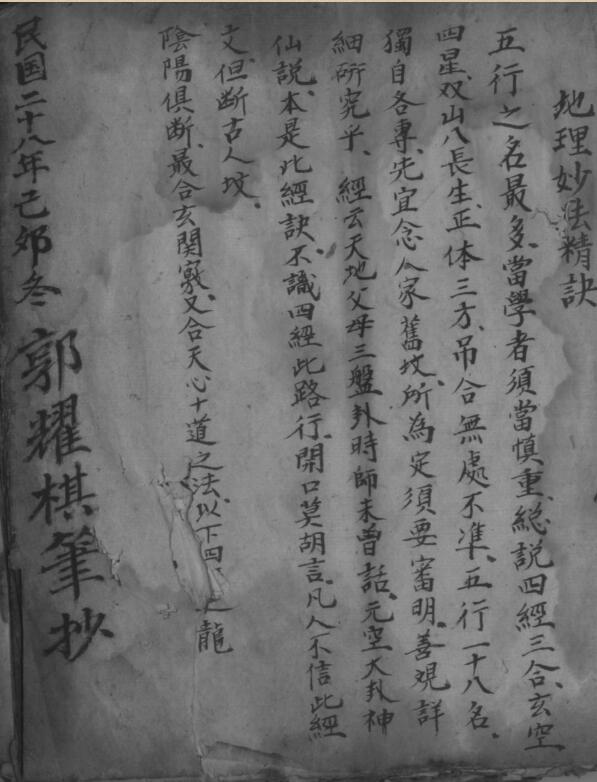 地理妙法精訣
五行之名最多、當學者須當慎重、総説四經三合、玄空
四星、双山八長生、正体三方、吊合無處不準、五行一十八名。
獨自各專、先宜念人家舊坟、所為定須要審明、善覌詳
細研究乎、經云天地父母三盤卦時師未曾話、元空大卦神
仙説、本是此經訣、不識四經此路行、開口莫胡言、凡人不信此經
文、但断古人坟。
陰陽俱断、最合玄関竅、又合天心十道之法、以下四 龍
民国二十八年己卯冬 郭耀棋筆抄